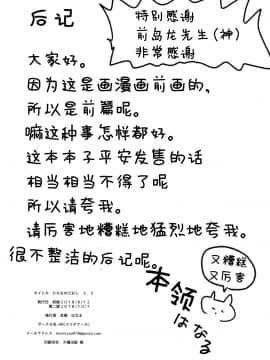 后记
特别感谢
前岛龙先生(神)
非常感谢
大家好。
因为这是画漫画前画的,
所以是前篇呢。
嘛这种事怎样都好。
这本本子平安发售的话
相当相当不得了呢
所以请夸我。
请厉害地糟糕地猛烈地夸我。
很不整洁的后记呢。
又糟糕
又厉害
本领
はなる